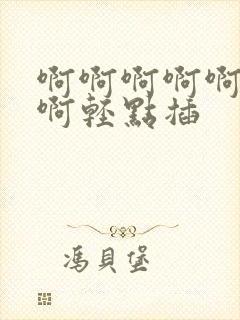 啊啊啊啊啊
啊輕點插
馮貝堡